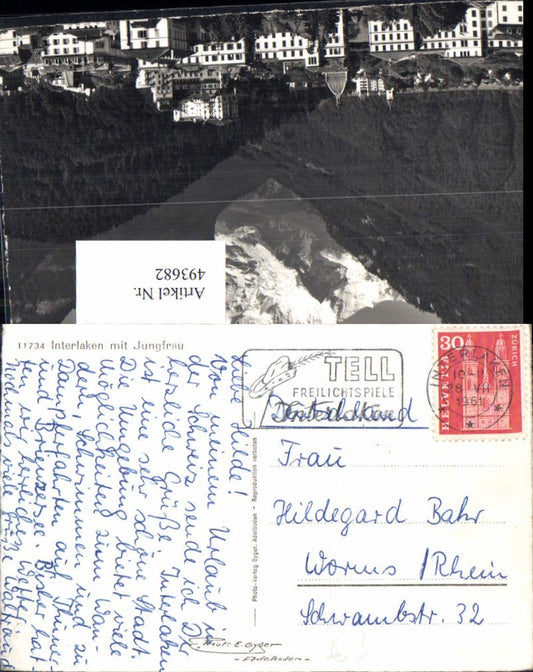 Artikel Nr.
493682
11734 Interlaken mit Jungfrau
Liebe Hilde!
Von meinem Urlaub in
der Schweiz sende ich Dir
herzliche Grüße. Interlaken
ist eine sehr schöne Stadt.
Die Umgebung bietet viele
Möglichkeiten zum Wan-
dern, Schwimmen und zu
Dampferfahrten auf Thuner-
und Brienzersee. Bisher hat-
ten wir herrliches Wetter.
viele Grüße
Photo-Verlag Gyger, Adelboden - Reproduktion verboten
Photo E. Gyger
- Adelboden -
TELL
FREILICHTSPIELE
INTERLAKEN
28. VII
1961
30
HELVETIA
ZÜRICH
Deutschland
Frau
Hildegard Bahr
Worms/Rhein
Schwambstr. 32